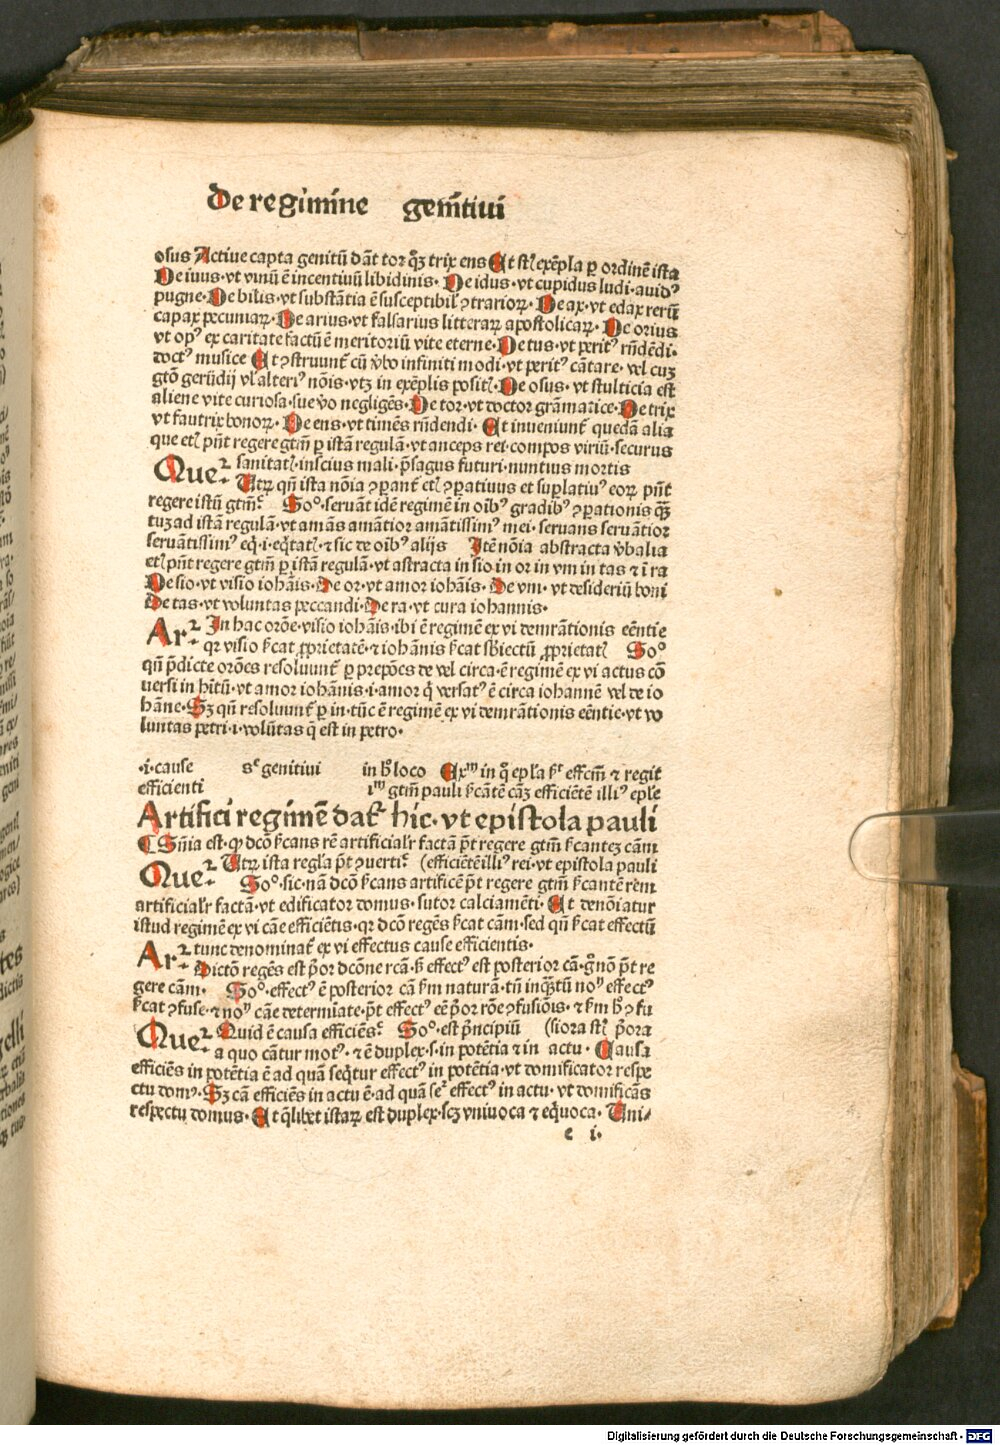 De regimine genitiui
osus Actiue capta genitū dāt tor qꝫ trix ens Et st̄ exēpla ꝑ ordinē ista
De iuus·vt vinū ē incentiuū libidinis· De idus·vt cupidus ludi·auidꝰ
pugne·De bilis·vt substātia ē susceptibil̓ ↄ̄trarioꝝ·De ax·vt edax rerū
capax pecuniaꝝ·De arius·vt falsarius litteraꝝ apostolicaꝝ·De orius
vt opꝰ ex caritate factū ē meritoriū vite eterne·De tus·vt peritꝰ rn̄dēdi·
doctꝰ musice Et ↄstruunt̄ cū v̓bo infiniti modi·vt peritꝰ cātare·vel cuꝫ
gtō gerūdij vl̓ alteriꝰ nōis·vtꝫ in exēplis posit̄·De osus·vt stulticia est
aliene vite curiosa·sue v̓o negligēs·De tor·vt doctor grāmatice·De trix
vt fautrix bonoꝝ·De ens·vt timēs rn̄dendi·Et inueniunt̄ quedā alia
que et̄ pn̄t regere gtm̄ ꝑ istā regulā·vt anceps rei·compos viriū·securus
Que² sanitat̄·inscius mali·p̄sagus futuri·nuntius mortis
Utꝝ qn̄ ista nōia ↄꝑant̄ et̄ ↄꝑatiuus et suꝑlatiuꝰ eoꝝ pn̄t
regere istū gtm̄ᷓ Soᵒ·seruāt idē regimē in oībꝰ gradibꝰ ↄꝑationis qꝫ
tuꝫ ad istā regulā·vt amās amātior amātissimꝰ mei·seruans seruātior
seruātissimꝰ eq̄·i·eq̄tat̄·⁊ sic de oībꝰ alijs Itē nōia abstracta v̓balia
et̄ pn̄t regere gtm̄ ꝑ istā regulā·vt astracta in sio in or in vm in tas ⁊ ī ra
De sio·vt visio iohāis·De or·vt amor iohāis·De vm·vt desideriū boni
De tas·vt voluntas peccandi·De ra·vt cura iohannis·
Ar² In hac orōe·visio iohāis·ibi ē regimē ex vi demrātionis eēntie
qꝛ visio ſcat ꝓprietatē·⁊ iohānis ſcat sbiectū ꝓprietat̄ Soᵒ
qn̄ p̄dicte orōes resoluunt̄ ꝑ prepōes de vel circa·ē regimē ex vi actus cō
uersi in hītū·vt amor iohānis·i·amor q̄ versat̄ꝰ ē circa iohannē vel de io
hāne·Sꝫ qn̄ resoluunt̄ ꝑ in·tūc ē regimē ex vi demrātionis eēntie·vt vo
luntas petri·i·volūtas q̄ est in petro·
·i·cause sᶜ genitiui in hͦ loco Exᵐ in q̄ epl̄a ſrͭ effcm̄ ⁊ regit̄
efficienti iᵐ gtm̄ pauli ſcātē cāꝫ efficiētē illiꝰ epl̄e
Artifici regimē dat̄ hic·vt epistola pauli
Sn̄ia est·ꝙ dcō ſcans rē artificial̓r factā pt̄ regere gtm̄ ſcanteꝫ cām
Que² Utꝝ ista regl̄a pt̄ ↄuerti (efficiētē illiꝰ rei·vt epistola pauli
Soᵒ·sic·nā dcō ſcans artificē pt̄ regere gtm̄ ſcantē rem
artificial̓r factā·vt edificator domus·sutor calciamēti·Et denōiatur
istud regimē ex vi cāe efficiētis·qꝛ dcō regēs ſcat cām·sed qn̄ ſcat effectū
Ar² tunc denominat̄ ex vi effectus cause efficientis·
Dictō regēs est pͥor dcōne rcā·s̄ effectꝰ est posterior cā·gͦ nō pt̄ re
gere cām· Soᵒ·effectꝰ ē posterior cā ſm naturā·tn̄ inqͣtū noʸ effectꝰ
ſcat ↄfuse·⁊ noʸ cāe determīate·pt̄ effectꝰ eē pͥor rōe ↄfusiōis·⁊ ſm hͦ ↄfu
Que² Quid ē causa efficiēsᷓ Soᵒ·est pͥncipiū (siora st̄ pͥora
a quo cātur motꝰ·⁊ ē duplex·s·in potētia ⁊ in actu·Causa
efficiēs in potētia ē ad quā seq̄tur effectꝰ in potētia·vt domificator respe
ctu domꝰ·Sꝫ cā efficiēs in actu ē·ad quā seͬ effectꝰ in actu·vt domificās
respectu domus·Et q̄libet istaꝝ est duplex·scꝫ vniuoca ⁊ eq̄uoca·Uni⸗
e i·
Digitalisierung gefördert durch die Deutsche Forschungsgemeinschaft - DFG